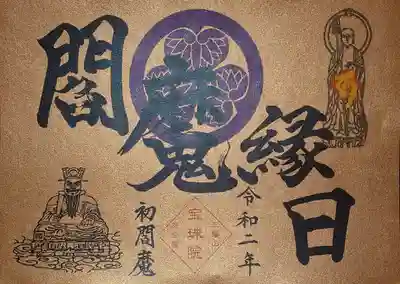 閻魔
縁日
令和二年
宝珠院
初閻魔